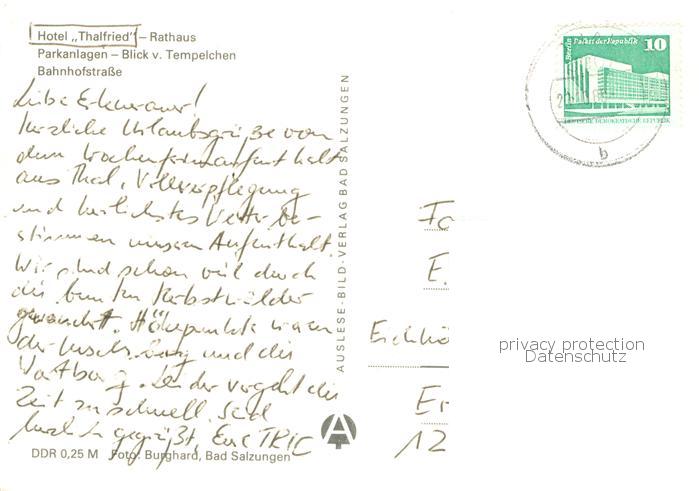 Hotel „Thalfried" – Rathaus
Parkanlagen – Blick v. Tempelchen
Bahnhofstraße
Liebe
herzliche Urlaubsgrüße von
dem Wochenferienaufenthalt
aus Thal. Vollverpflegung
und herrlichstes Wetter be-
stimmen unseren Aufenthalt.
Wir sind schon viel durch
die bunten Herbstwälder
gewandert. Höhepunkte waren
die und die
Wartburg. Leider vergeht die
Zeit zu schnell. Seid
herzlich gegrüßt, Eure
DDR 0,25 M Foto: Burghard, Bad Salzungen
AUSLESE-BILD-VERLAG BAD SALZUNGEN
Berlin Palast der Republik 10
DEUTSCHE DEMOKRATISCHE REPUBLIK
b
Fa
E.
Er
12
privacy protection
Datenschutz